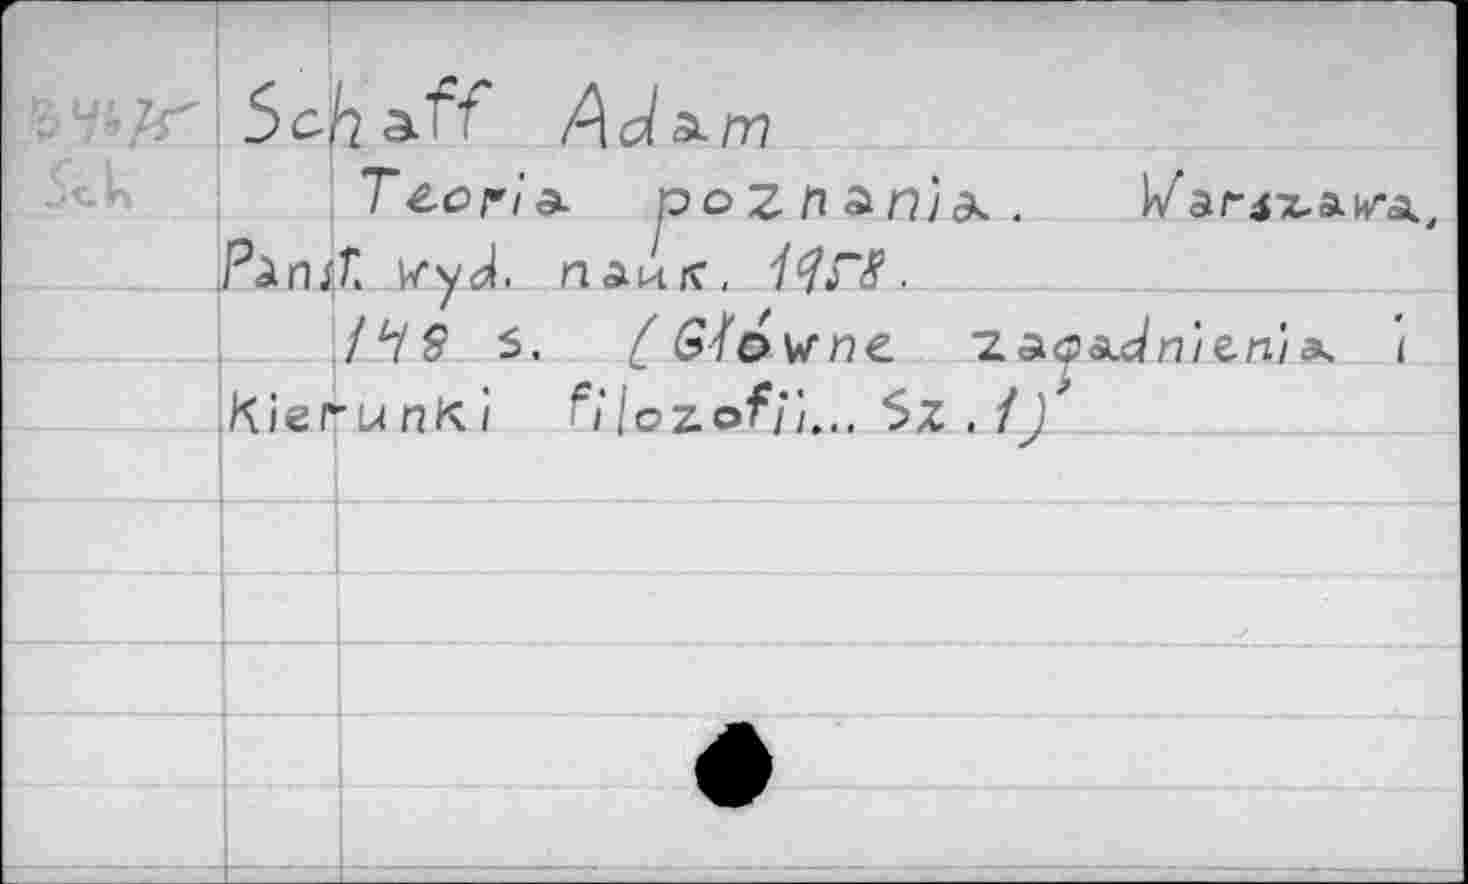 Schaff Adam
Sch Teoria poznania. Warszawa,
Pànst. wyd. nauk. 1958.
148 s. (Główne zagadnienia i
Kierunki filozofii... Sz. 1)